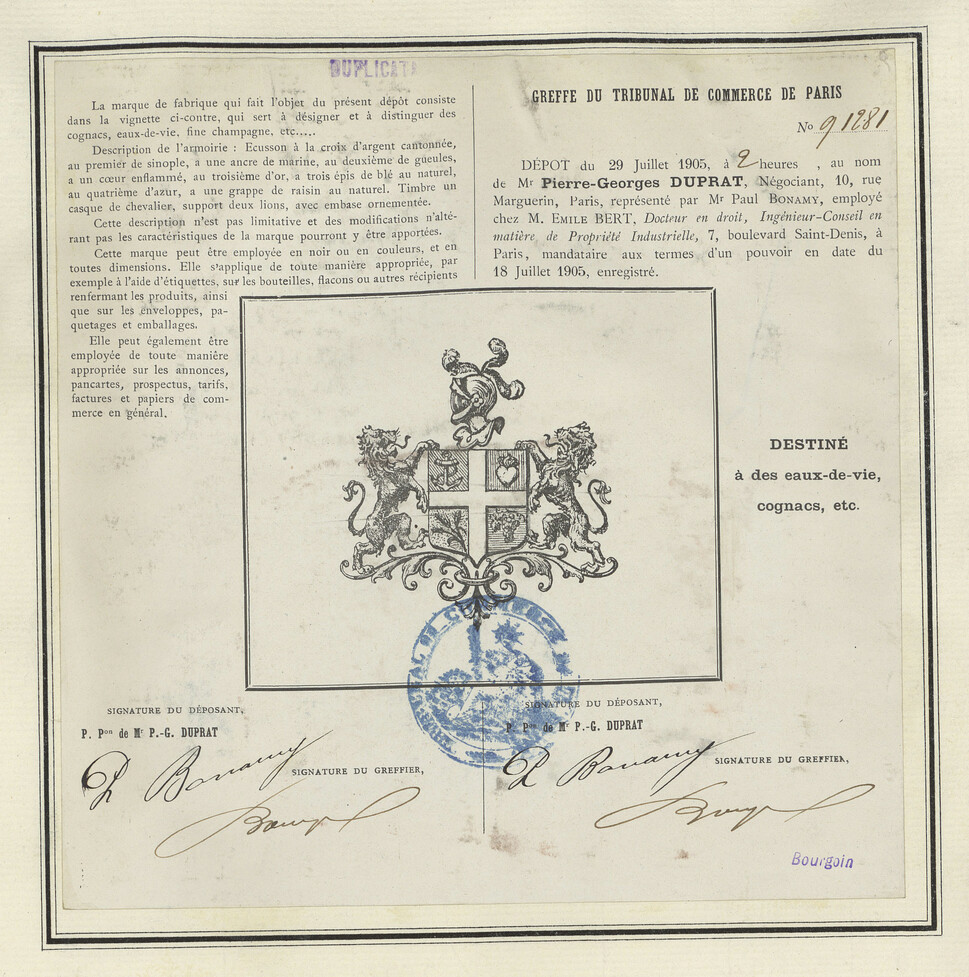 DUPLICATA
La marque de fabrique qui fait l'objet du présent dépôt consiste
dans la vignette ci-contre, qui sert à désigner et à distinguer des
cognacs, eaux-de-vie, fine champagne, etc.....
Description de l'armoirie : Ecusson à la croix d'argent cantonnée,
au premier de sinople, a une ancre de marine, au deuxième de gueules,
a un cœur enflammé, au troisième d'or, a trois épis de blé au naturel,
au quatrième d'azur, a une grappe de raisin au naturel. Timbre un
casque de chevalier, support deux lions, avec embase ornementée.
Cette description n'est pas limitative et des modifications n'alté-
rant pas les caractéristiques de la marque pourront y être apportées.
Cette marque peut être employée en noir ou en couleurs, et en
toutes dimensions. Elle s'applique de toute manière appropriée, par
exemple à l'aide d'étiquettes, sur les bouteilles, flacons ou autres récipients
renfermant les produits, ainsi
que sur les enveloppes, pa-
quetages et emballages.
Elle peut également être
employée de toute manière
appropriée sur les annonces,
pancartes, prospectus, tarifs,
factures et papiers de com-
merce en général.
GREFFE DU TRIBUNAL DE COMMERCE DE PARIS
No 91281
DÉPOT du 29 Juillet 1905, à 2 heures , au nom
de Mr Pierre-Georges DUPRAT, Négociant, 10, rue
Marguerin, Paris, représenté par Mr Paul BONAMY, employé
chez M. EMILE BERT, Docteur en droit, Ingénieur-Conseil en
matière de Propriété Industrielle, 7, boulevard Saint-Denis, à
Paris, mandataire aux termes d'un pouvoir en date du
18 Juillet 1905, enregistré.
DESTINÉ
à des eaux-de-vie,
cognacs, etc.
SIGNATURE DU DÉPOSANT,
P. Pon de Mr P.-G. DUPRAT
P Bonamy
SIGNATURE DU GREFFIER,
SIGNATURE DU DÉPOSANT,
P. Pon de Mr P.-G. DUPRAT
P Bonamy
SIGNATURE DU GREFFIER,
Bourgoin